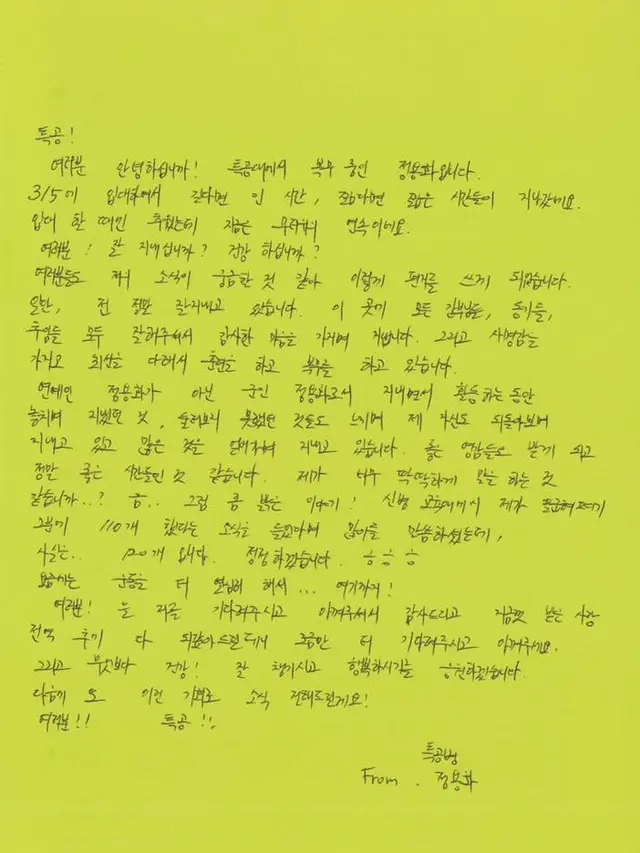 특공!
여러분 안녕하십니까! 특공대에서 복무 중인 정용화입니다.
3/5에 입대해서 길다면 긴 시간, 짧다면 짧은 시간들이 지나갔네요.
입대 할 때엔 추웠는데 지금은 무더위의 연속이네요.
여러분! 잘 지내십니까? 건강 하십니까?
여러분들도 저의 소식이 궁금한 것 같아 이렇게 편지를 쓰게 되었습니다.
일단, 전 정말 잘지내고 있습니다. 이 곳의 모든 간부님들, 동기들,
후임들 모두 잘해주셔서 감사한 마음을 가지며 지냅니다. 그리고 사명감을
가지고 최선을 다해서 훈련을 하고 복무를 하고 있습니다.
연예인 정용화가 아닌 군인 정용화로서 지내면서 활동하는 동안
놓치며 지냈던 것, 둘러보지 못했던 것들도 느끼며 제 자신도 되돌아보며
지내고 있고 많은 것을 지내고 있습니다. 좋은 영감들도 받게 되고
정말 좋은 시간들인 것 같습니다. 제가 너무 딱딱하게 말을 하는 것
같습니까..? 흠.. 그럼 좀 밝은 이야기! 신병 교육대에서 제가 팔굽혀펴기
2분에 110개 했다는 소식을 들었다며 많이들 말씀하셨는데,
사실은.. 120개 입니다. 정정하겠습니다. ㅎㅎㅎ
요즘에는 운동을 더 열심히 해서... 여기까지!
여러분! 늘 저를 기다려주시고 아껴주셔서 감사드리고 지금껏 받은 사랑
전역 후에 다 되갚아드릴테니 조금만 더 기다려주시고 아껴주세요.
그리고 무엇보다 건강! 잘 챙기시고 행복하시기를 응원하겠습니다.
다음에 또 이런 기회로 소식 전해드릴게요!
여러분!! 특공!!
특공병
From. 정용화